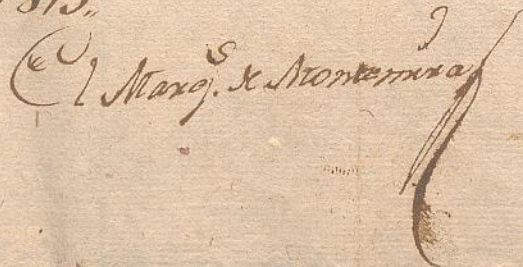 1813,,
El Marq.s de Montemira